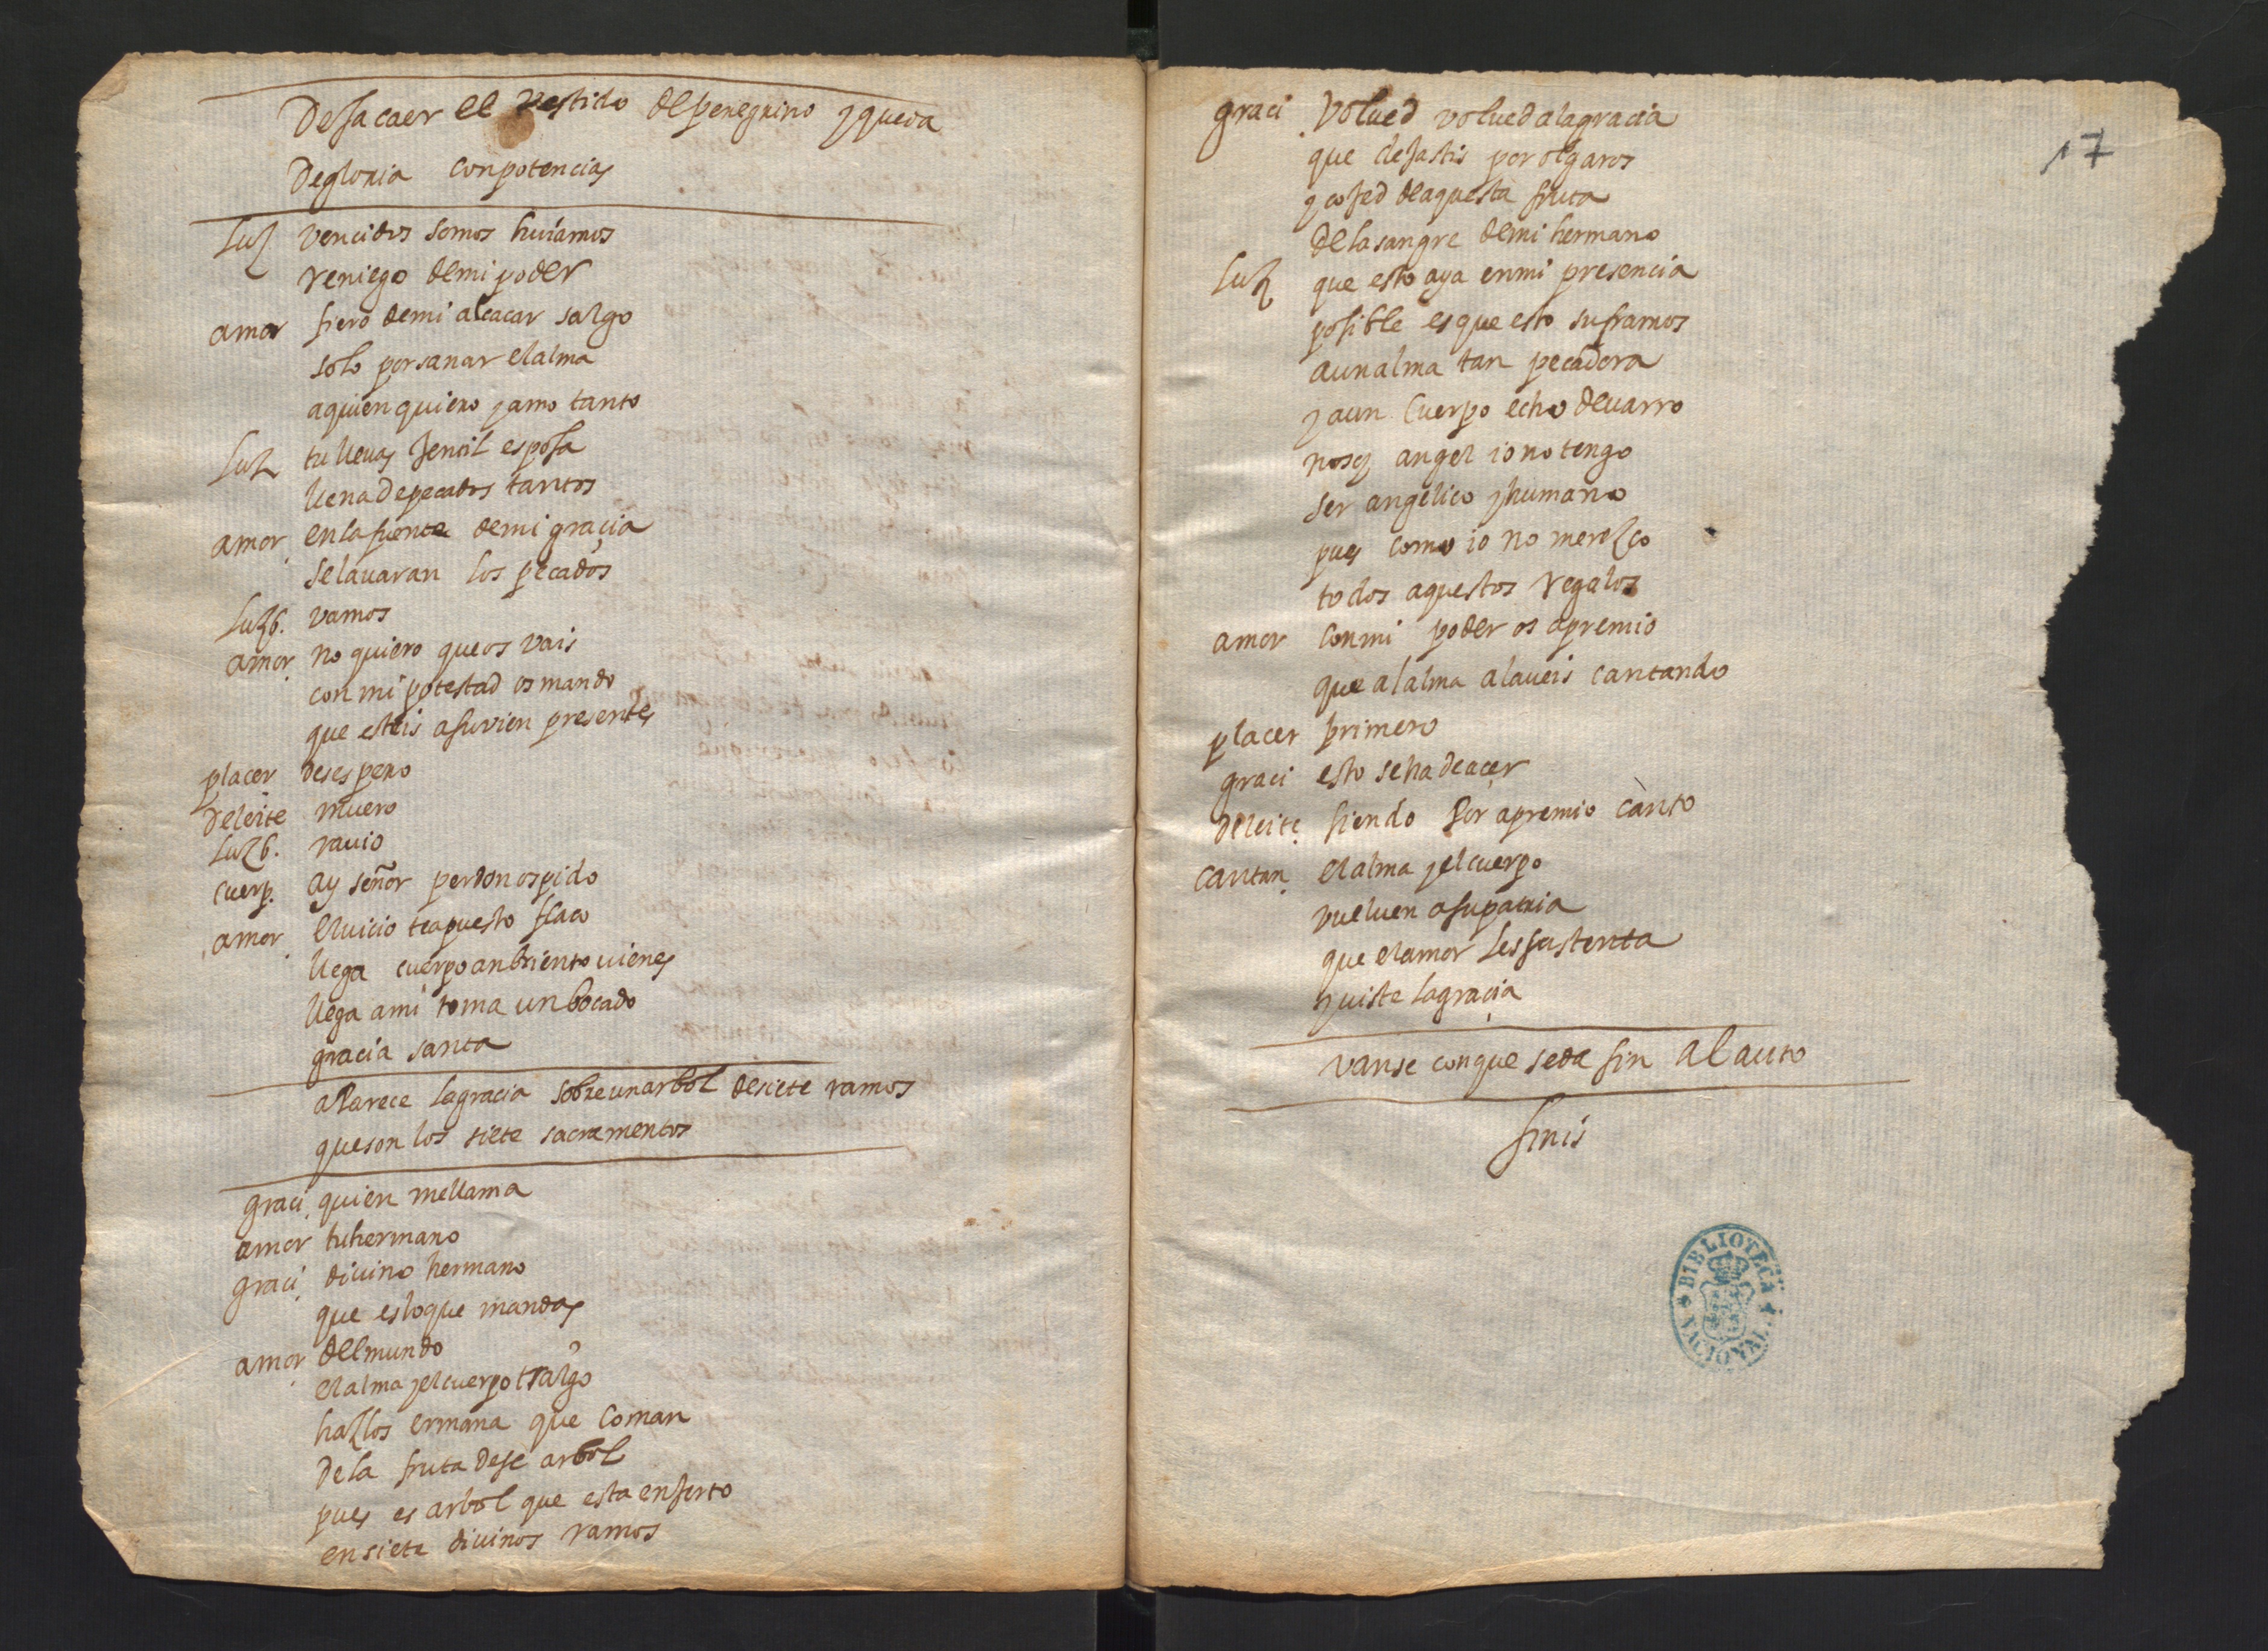 Dejacaer el vestido de peregrino y queda
De gloria con potencias
Luz vencidos somos huiamos
reniego de mi poder
amor fiero de mi alcacar salgo
solo por sanar el alma
a quien quiero y amo tanto
Luz tu lleuas jentil esposa
llena de pecados tantos
amor en la fuente de mi graçia
se lauaran los pecados
Luzb. vamos
amor no quiero que os vais
con mi potestad os mando
que esteis a su vien presentes
placer desespero
Deleite muero
Luzb. rauio
cuerp. ay señor perdon os pido
amor el uicio te a puesto flaco
llega cuerpo anbriento uienes
llega a mi toma un bocado
gracia santa
aparece la gracia sobre un arbol de siete ramos
que son los siete sacramentos
graci quien me llama
amor tu hermano
graci diuino hermano
que es lo que mandas
amor del mundo
el alma y el cuerpo traigo
hazlos ermana que coman
De la fruta dese arbol
pues es arbol que esta enjerto
en siete diuinos ramos
17
graci Volued volued a la gracia
que dejastis por olgaros
y cojed de aquesta fruta
de la sangre de mi hermano
Luz que esto aya en mi presencia
posible es que esto suframos
a un alma tan pecadora
y a un cuerpo echo de uarro
no soy angel io no tengo
ser angelico y humano
pues como io no merezco
todos aquestos regalos
amor con mi poder os apremio
que al alma alaueis cantando
placer primero
graci esto se ha de açer
Deleite siendo por apremio canto
cantan el alma y el cuerpo
vueluen a su patria
que el amor les sustenta
y uiste la graçia
vanse con que se da fin al auto
finis
BIBLIOTECA NACIONAL